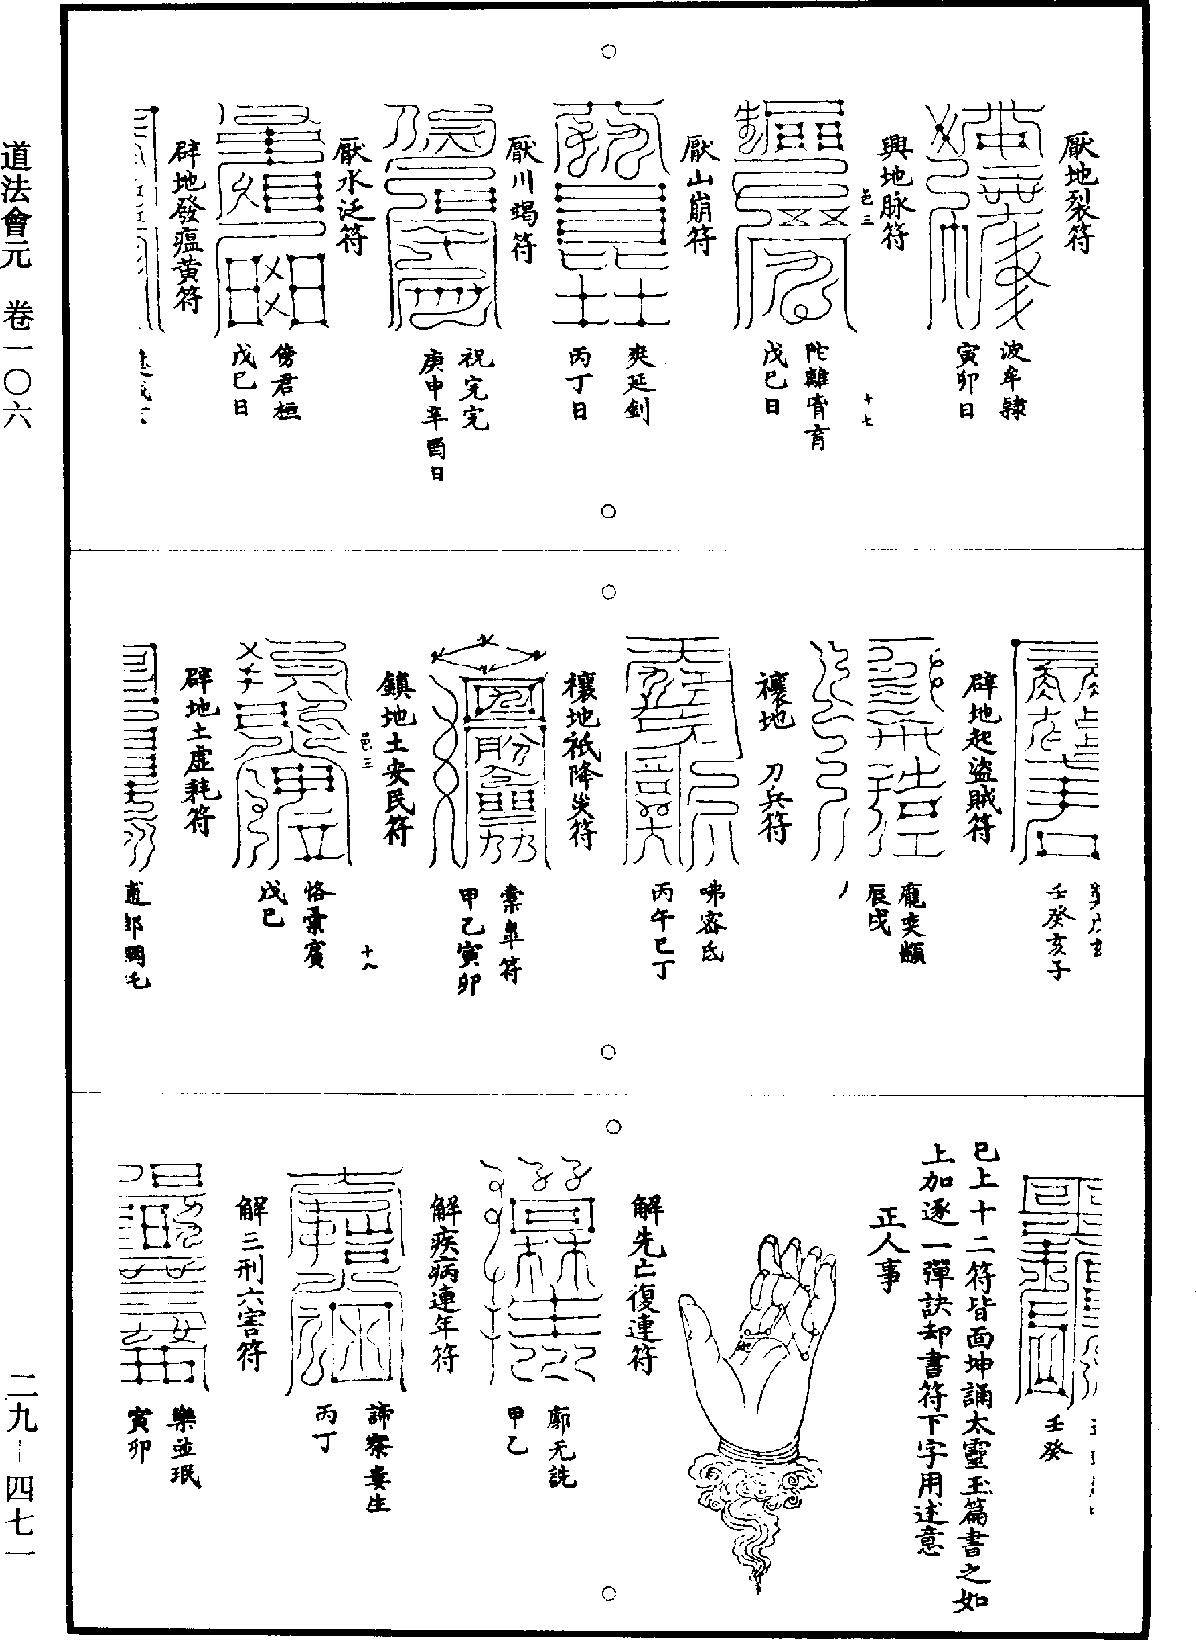 道法會元　卷一〇六
二九－四七一
厭地裂符
波牟隸
寅卯日
興地脉符
邑三
十七
戊巳日
厭山崩符
奕延釗
丙丁日
厭川竭符
祝完完
庚申辛酉日
厭水泛符
傍君桓
戊巳日
辟地發瘟黃符
壬癸亥子
辟地起盜賊符
辰戌
禳地　刀兵符
咈密氐
丙午巳丁
禳地祇降災符
甲乙寅卯
鎮地土安民符
邑三
十八
戊巳
辟地土虛耗符
壬癸
巳上十二符皆面坤誦太靈玉篇書之如
上加逐一彈訣却書符下字用述意
正人事
解先亡復連符
廓无詵
甲乙
解疾病連年符
諦寮婁生
丙丁
解三刑六害符
樂並珉
寅卯